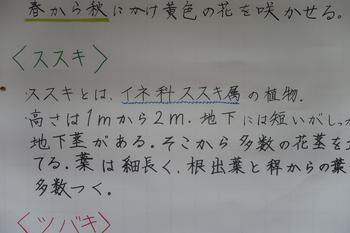 春から秋にかけ黄色の花を咲かせる。
〈ススキ〉
・ススキとは、イネ科ススキ属の植物.
・高さは1mから2m.地下には短いがしっ
地下茎がある。そこから多数の花茎を
てる。葉は細長く、根出葉と稈からの葉
多数つく。
〈ツバキ〉